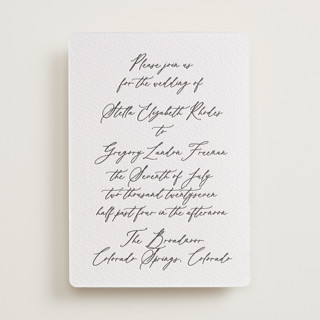 Please join us
for the wedding of
Stella Elizabeth Rhodes
to
Gregory Landon Freeman
the Seventh of July
two thousand twentyseven
half past four in the afternoon
The Broadmoor
Colorado Springs, Colorado